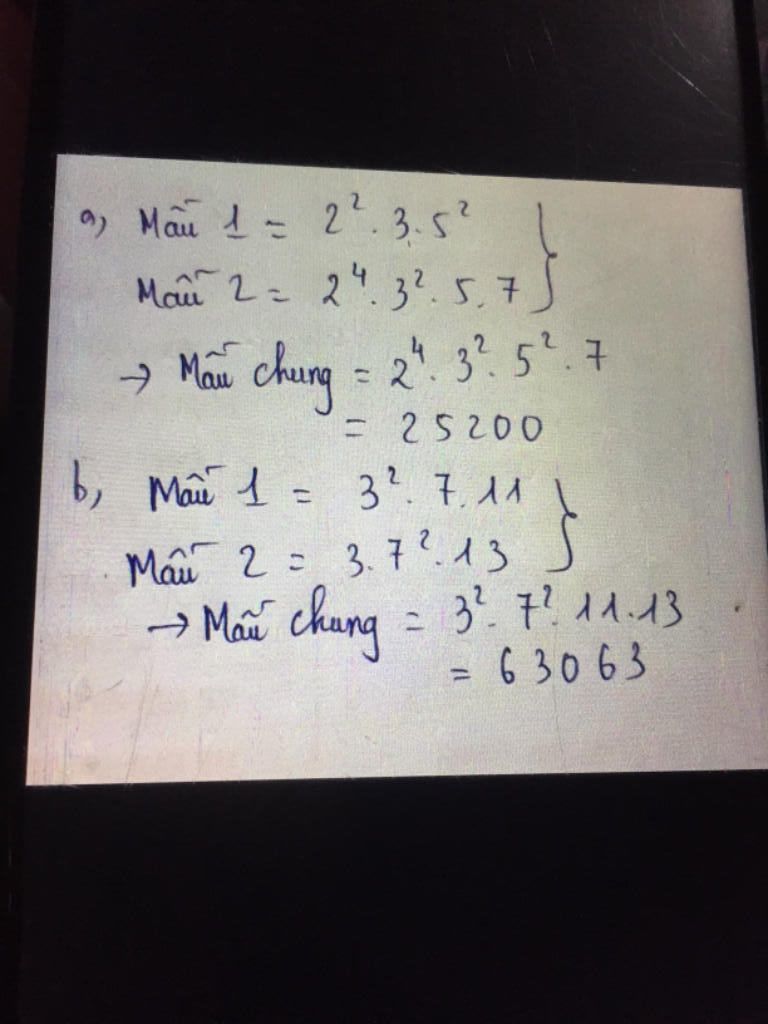 a, Mẫu 1 = 2². 3. 5²
Mẫu 2 = 2⁴. 3². 5. 7
→ Mẫu chung = 2⁴. 3². 5². 7
= 25200
b, Mẫu 1 = 3². 7. 11
Mẫu 2 = 3. 7². 13
→ Mẫu chung = 3². 7². 11. 13
= 63063